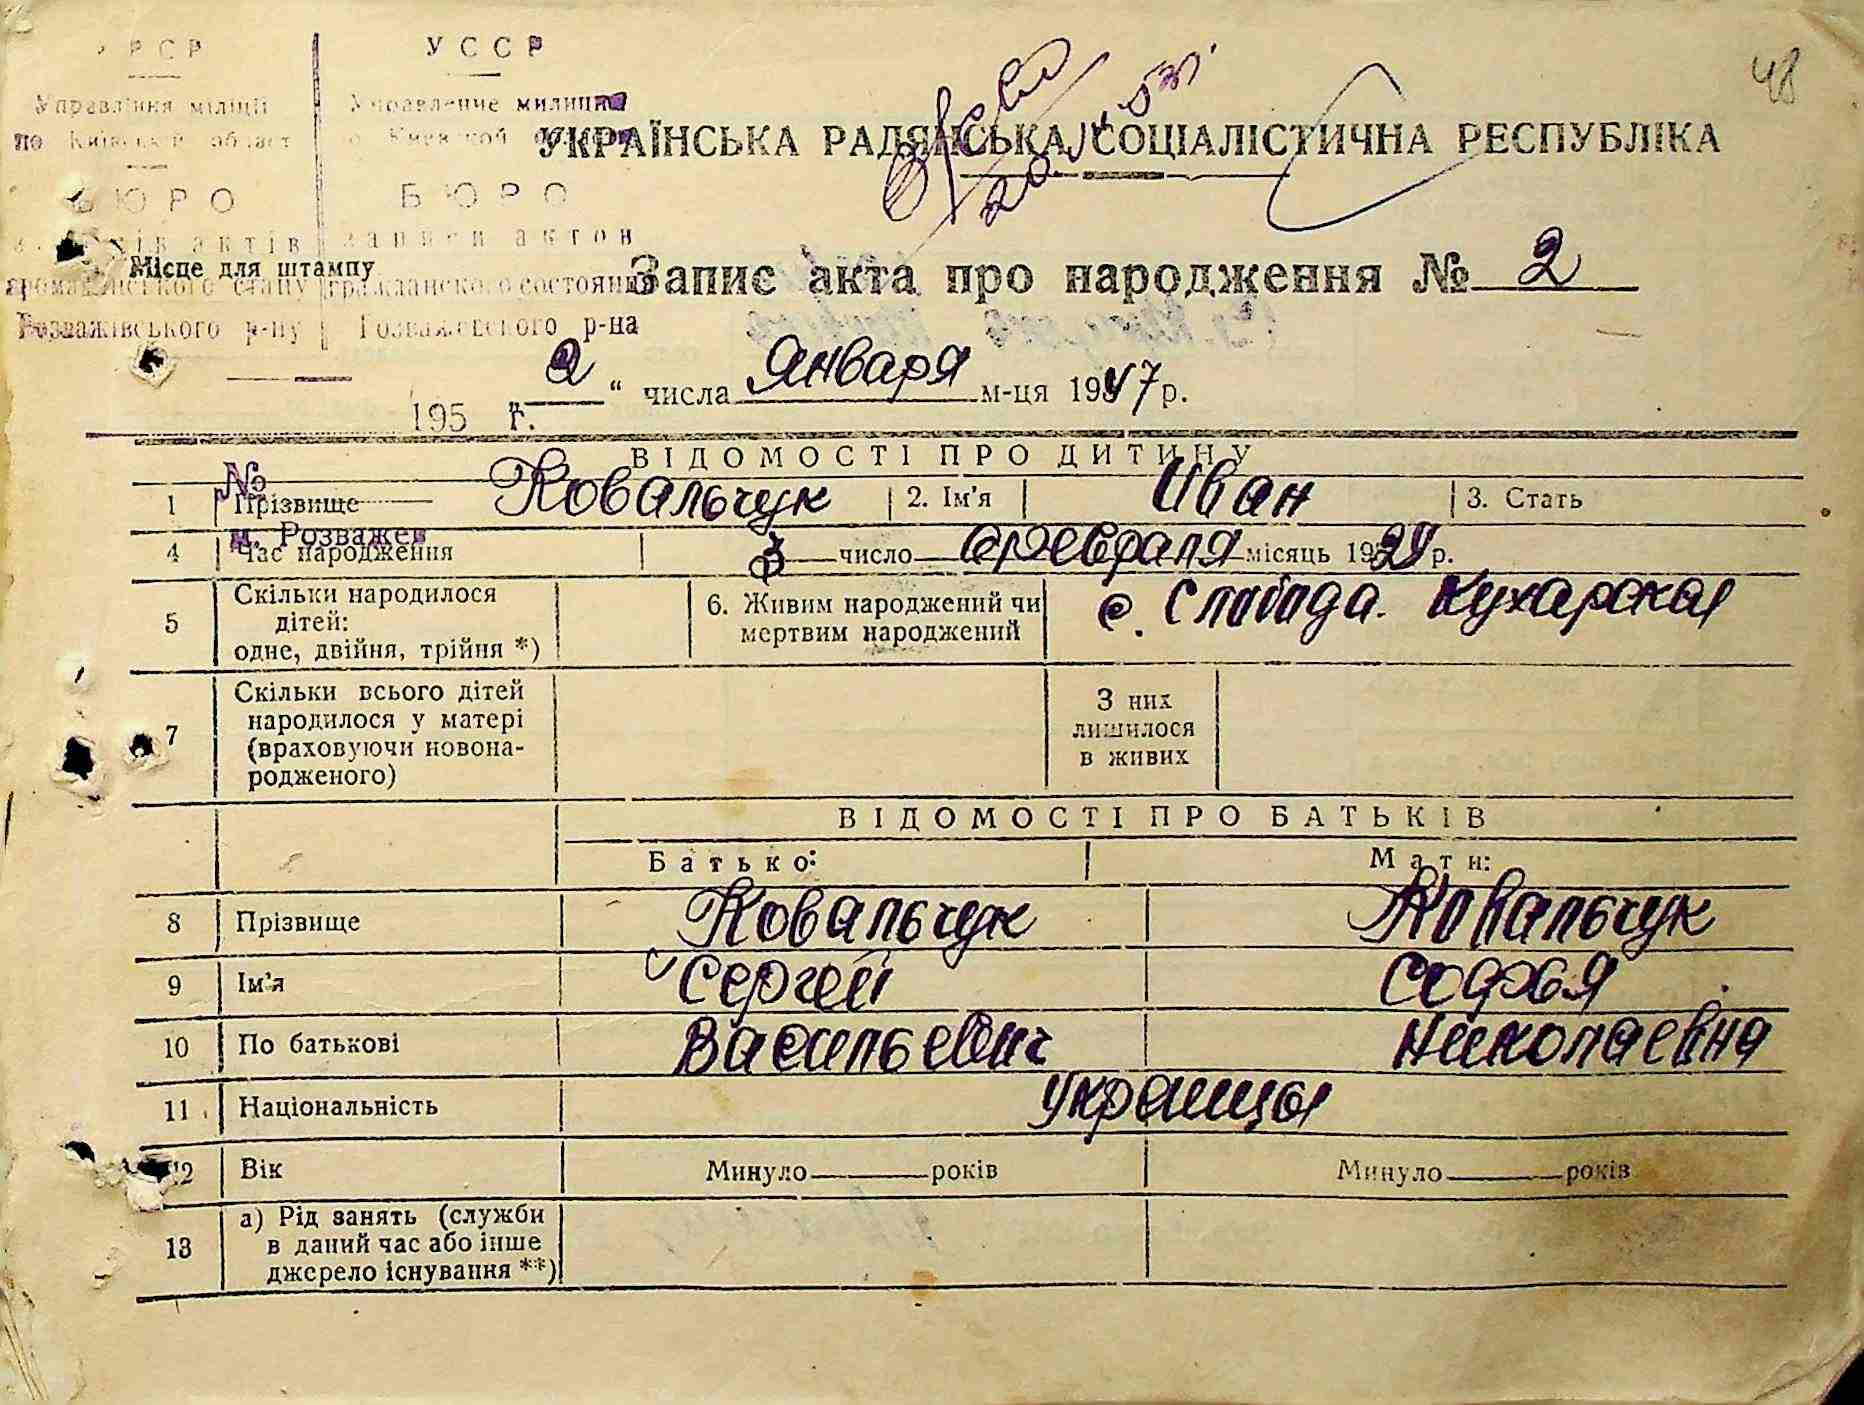 УРСР
УССР
48
Управління міліції
Управление милиции
по Київській област
по Киевской
УКРАЇНСЬКА РАДЯНСЬКА СОЦІАЛІСТИЧНА РЕСПУБЛІКА
БЮРО
БЮРО
записів актів
записи актов
Місце для штампу
громадянського стану
гражданского состояния
Запис акта про народження № 2
Розважівського р-ну
Розважевского р-на
2 “ числа Января м-ця 1947 р.
195 г.
ВІДОМОСТІ ПРО ДИТИНУ
№
1 Прізвище Ковальчук 2. Ім'я Иван 3. Стать
м. Розважев
4 Час народження 3 число февраля місяць 1924 р.
5 Скільки народилося дітей: одне, двійня, трійня *)
6. Живим народжений чи мертвим народжений с. Слобода. Кухарская
7 Скільки всього дітей народилося у матері (враховуючи новонародженого)
З них лишилося в живих
ВІДОМОСТІ ПРО БАТЬКІВ
Батько: Мати:
8 Прізвище Ковальчук Ковальчук
9 Ім'я Сергей Софья
10 По батькові Васильевич Николаевна
11 Національність Украинцы
12 Вік Минуло років Минуло років
13 а) Рід занять (служби в даний час або інше джерело існування **)